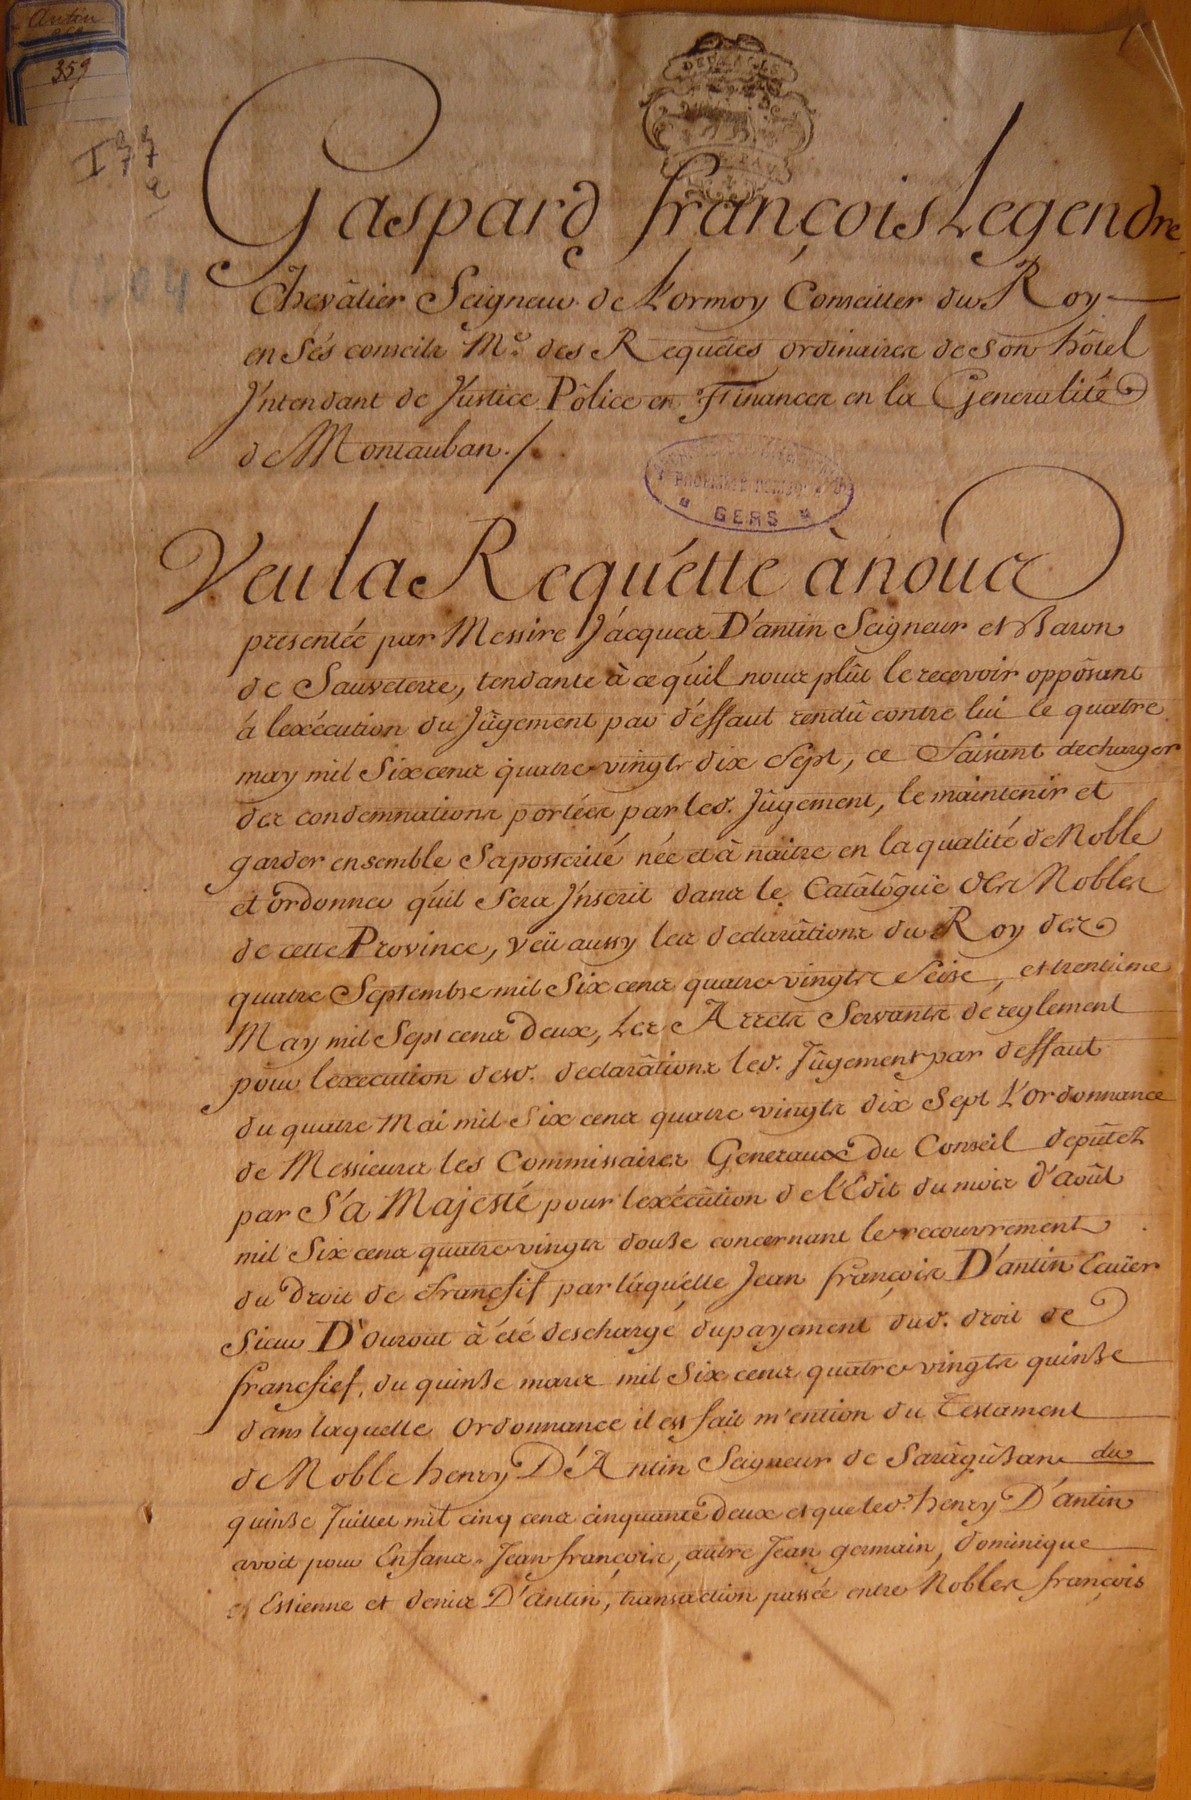 Antin
359
I 37
e
1704
Gaspard françois Legendre
Chevâlier Seigneur de Lormoy Conseiller du Roy
en sés conseils Me. des Requétes ordinaires de son hôtel
Jntendant de Justice Pôlice et Finances en la Generalité
de Montauban./.
GERS
Veu la Requétte à nous
presentée par Messire Jácques D'antin Seigneur et Baron
de Sauveterre, tendante à ce qúil nous plût le recevoir oppôsant
à lexécution du Jûgement par déffaut rendû contre lui le quatre
may mil six cens quatre vingts dix sept, ce faisant decharger
des condemnations portées par led. Jûgement, le maintenir et
garder ensemble sa posterité née et à naitre en la qualité de Noble
et ordonner qúil sera Jnscrit dans le Catâlôgue des Nobles
de cette Province, veü aussy les declarâtions du Roy des
quatre Septembre mil six cens quatre vingts seise, et trentième
May mil sept cens deux, Les Arrets servants de reglement
pour lexecution desd. declarâtions led. Jûgement par deffaut
du quatre Mai mil six cens quatre vingts dix sept L'ordonnance
de Messieurs les Commissaires Generaux du Conseil depûtez
par S'a Majesté pour lexécûtion de l'Edit du mois d'août
mil six cens quatre vingts douse concernant le recouvrement
du droit de francfif par laquélle Jean françois D'antin Ecuïer
sieur D'ourout à été deschargé du payement dud. droit de
francfief, du quinse mars mil six cens quatre vingts quinse
dans laquelle ordonnance il est fait m'ention du Testament
de Noble henry D'Antin Seigneur de Saragûsan du
quinse Juillet mil cinq cens cinquante deux et que led. henry D'antin
avoit pour Enfans Jean françois, autre Jean germain, Dominique
Estienne et denis D'antin, transaction passée entre Nobles françois